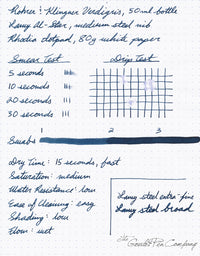 Rohrer & Klingner Verdigris, 50ml bottle
Lamy Al-Star, medium steel nib
Rhodia dotpad, 80g white paper
Smear Test
Drip Test
5 seconds
10 seconds
20 seconds
30 seconds
1 2 3
Swabs
Dry Time: 15 seconds, fast
Saturation: medium
Water Resistance: low
Ease of Cleaning: easy
Shading: low
Flow: wet
Lamy steel extra-fine
Lamy steel broad
The Goulet Pen Company